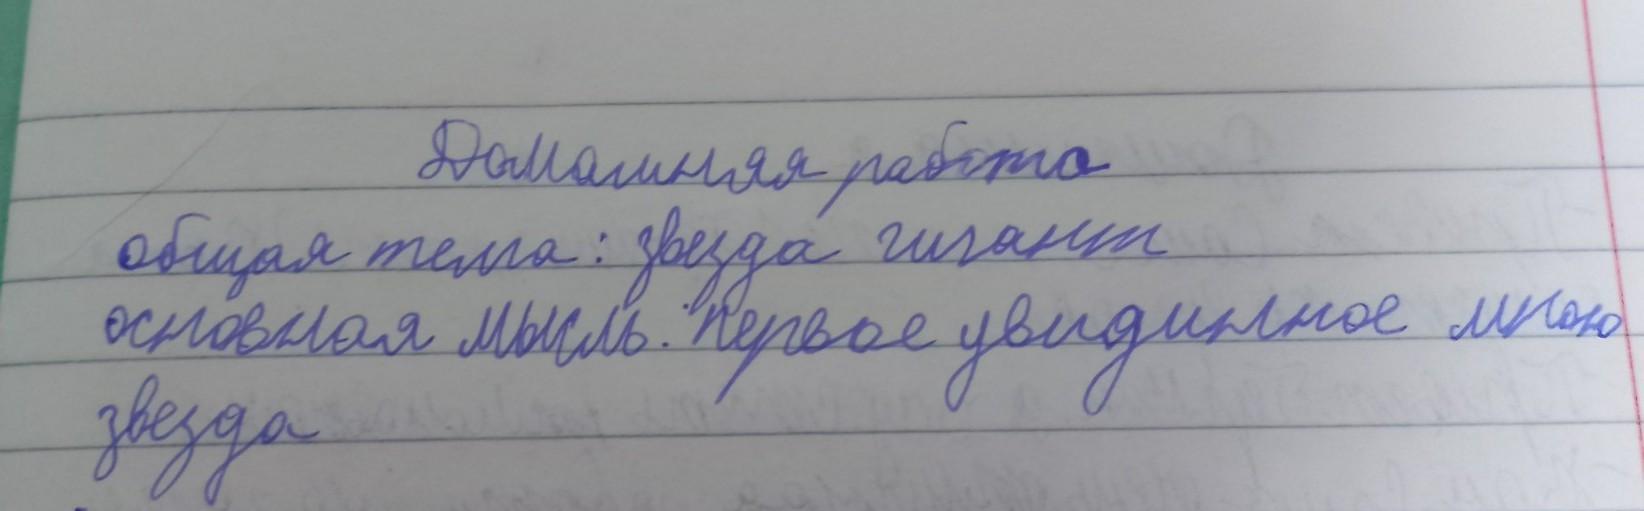 Домашняя работа
общая тема: звезда гигант
основная мысль. Первое увидинное мною
звезда